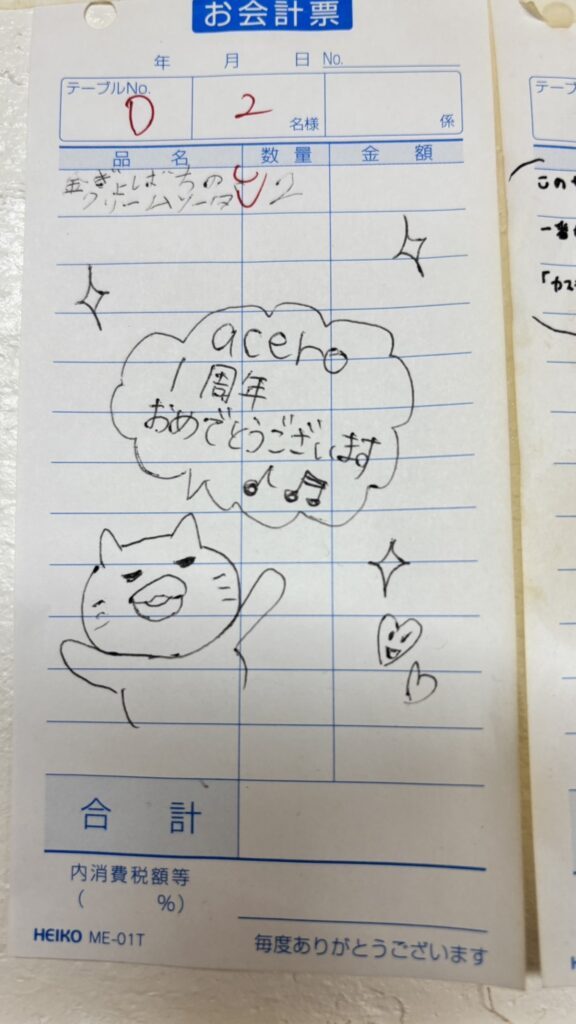 お会計票
年 月 日 No.
テーブルNo. 0 2 名様 係
品名 数量 金額
金ぎょばちの
クリームソーダ 2
acero
1周年
おめでとうございます
合計
内消費税額等
( %)
HEIKO ME-01T
毎度ありがとうございます
テーブ
この
一番